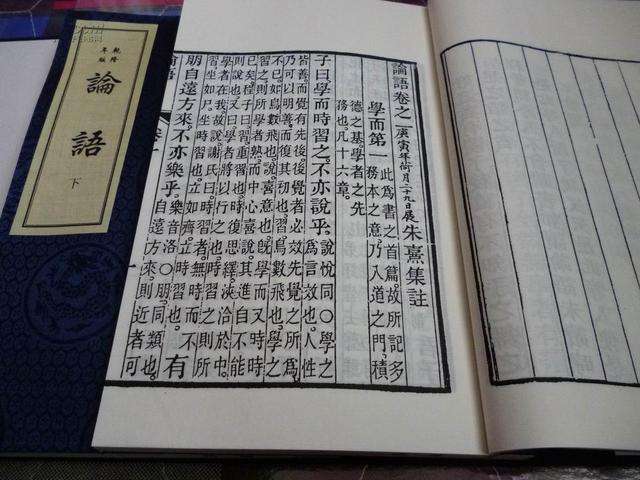 乾隆
年版
論語
下
論語卷之一
庚寅年荷月二十九日展
朱熹集註
學而第一
此為書之首篇。故所記多
務本之意。乃入道之門。積
德之基。學者之先
務也。凡十六章。
子曰。學而時習之。不亦說乎。
說悅同〇學之
為言效也。人性
皆善。而覺有先後。後覺者必效先覺之所為。
乃可以明善而復其初也。習鳥數飛也。學之
不已。如鳥數飛也。說。喜意也。既學而又時時
習之。則所學者熟。而中心喜說。其進自不能
已矣。程子曰。習重習也。時復思繹。浹洽於中。
則說也。又曰。學者將以行之也。時習之。則所
學者在我。故說。謝氏曰。時習者。無時而不
習。坐如尸。坐時習也。立如齊。立時習也。
有
朋自遠方來。不亦樂乎。
樂音洛〇朋同類也。
自遠方來。則近者可